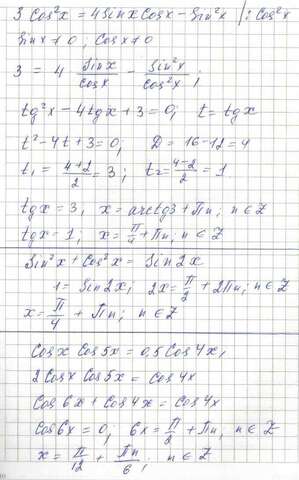 3 Cos²x = 4 Sinx Cosx - Sin²x | : Cos²x
Sinx ≠ 0 ; Cosx ≠ 0
3 = 4 Sinx/Cosx - Sin²x/Cos²x ;
tg²x - 4tgx + 3 = 0; t = tgx
t² - 4t + 3 = 0, D = 16 - 12 = 4
t₁ = (4+2)/2 = 3 ; t₂ = (4-2)/2 = 1
tgx = 3, x = arctg3 + Πn; n ∈ Z
tgx = 1; x = Π/4 + Πn; n ∈ Z
Sin²x + Cos²x = Sin2x
1 = Sin2x; 2x = Π/2 + 2Πn; n ∈ Z
x = Π/4 + Πn; n ∈ Z
Cosx Cos5x = 0,5 Cos4x,
2Cosx Cos5x = Cos4x
Cos6x + Cos4x = Cos4x
Cos6x = 0; 6x = Π/2 + Πn, n ∈ Z
x = Π/12 + Πn/6; n ∈ Z